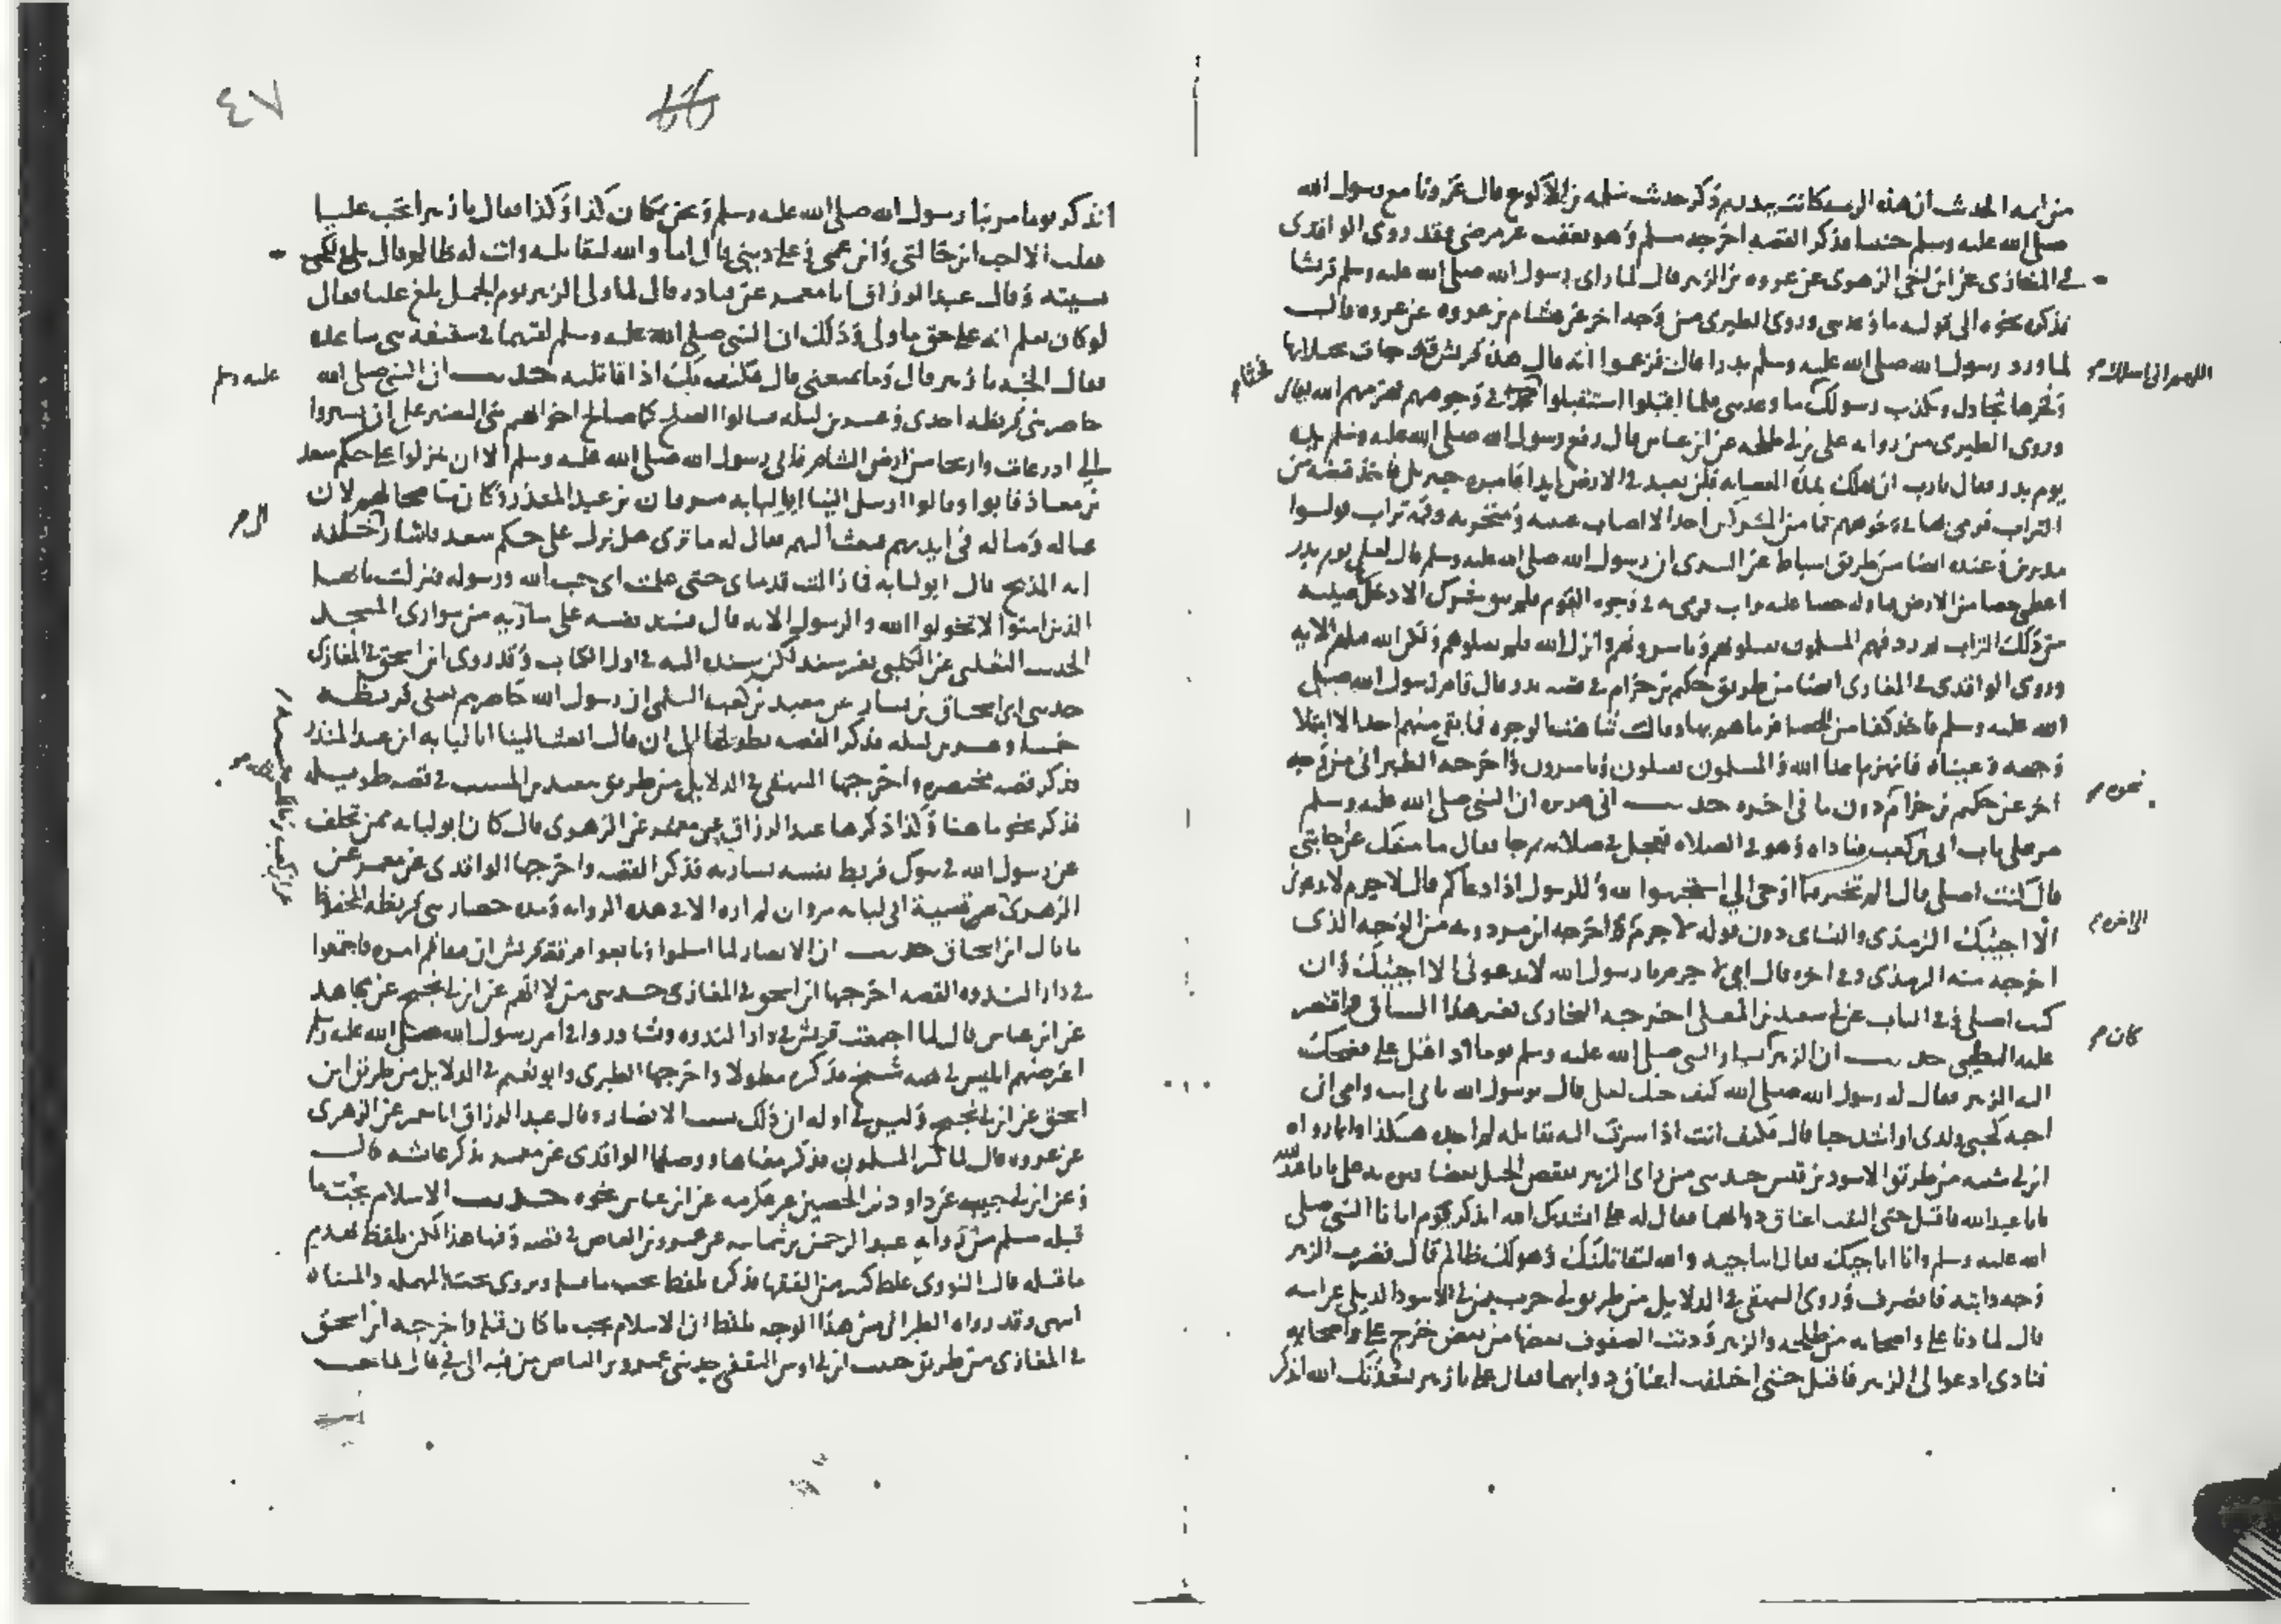 من ايمه الحديث ان هذه الرميه كانت يوم بدر ثم ذكر حديث سلمه بن الاكوع قال غزونا مع رسول الله
صلى الله عليه وسلم حنينا فذكر القصه اخرجه مسلم وهو تعقب غير مرضي فقد روى الواقدى
في المغازى عن ابن اخي الزهرى عن عروه بن الزبير قال لما راى رسول الله صلى الله عليه وسلم قريشا
فذكر نحوه الى قوله ما وعدتني وروى الطبرى من وجه اخر عن هشام بن عروه عن عروه قال
لما ورد رسول الله صلى الله عليه وسلم بدرا قال فزعموا انه قال هذه قريش قد جات بخيلايها
اللهم اني اسالك
وفخرها تجادل وتكذب رسولك ما وعدتني فلما اقبلوا استقبلوا في وجوههم فهزمهم الله تعالى
وروى الطبرى من روايه علي بن ابي طلحه عن ابن عباس قال رفع رسول الله صلى الله عليه وسلم يديه
يوم بدر فقال يارب ان تهلك هذه العصابه فلن تعبد في الارض ابدا فامره جبريل فاخذ قبضه من
التراب فرمى بها في وجوههم فما من المشركين احد الا اصاب عينيه ومنخريه وفمه تراب فولوا
مدبرين وعنده ايضا من طريق اسباط عن السدى ان رسول الله صلى الله عليه وسلم قال لعلي يوم بدر
اعطني حصا من الارض فناوله حصا عليه تراب فرمى به في وجوه القوم فلم يبق مشرك الا دخل عينيه
من ذلك التراب ثم ردفهم المسلمون يقتلونهم وياسرونهم وانزل الله فلم تقتلوهم ولكن الله قتلهم الايه
وروى الواقدى في المغازى ايضا من طريق حكيم بن حزام في قصه بدر قال فامر رسول الله صلى
الله عليه وسلم فاخذ كفا من الحصا فرماهم بها وقال شاهت الوجوه فما بقي منهم احد الا امتلا
وجهه وعيناه فانهزم اعدا الله والمسلمون يقتلون وياسرون واخرجه الطبراني من وجه
اخر عن حكيم بن حزام دون ما في اخره حديث ابي هريره ان النبي صلى الله عليه وسلم
نحوه
مر على باب ابي بن كعب فناداه وهو في الصلاه فعجل في صلاته ثم جا فقال ما منعك عن اجابتي
قال كنت اصلي قال الم تخبر فيما اوحي الي استجيبوا لله وللرسول اذا دعاكم قال لا جرم لا تدعوني
الا اجبتك الترمذى والنساى دون قوله لا جرم واخرجه ابن مردويه من الوجه الذى
الى اخره
اخرجه منه الترمذى وفي اخره قال ابي لا جرم يا رسول الله لا تدعوني الا اجبتك وان
كنت اصلي وفي الباب عن ابي سعيد بن المعلى اخرجه البخارى بغير هذا السياق واقتصر
عليه الطيبي حديث ان الزبير كان يساير النبي صلى الله عليه وسلم يوما اذ اقبل علي فضحك
كان
اليه الزبير فقال له رسول الله صلى الله كيف حبك لعلي قال يرسول الله بابي انت وامي اني
احبه كحبي ولدى او اشد حبا قال فكيف انت اذا سرت اليه تقاتله لم اجده هكذا وانما رواه
ابن ابي شيبه من طريق الاسود بن قيس حدثني من راى الزبير يقعص الخيل فناداه علي يا با عبدالله
يا با عبدالله فاقبل حتى التفت اعناق دوابهما فقال له علي انشدك الله اتذكر يوم اتانا النبي صلى
الله عليه وسلم وانا اناجيك فقال اتناجيه والله ليقاتلنك وهو لك ظالم قال فضرب الزبير
وجه دابته فانصرف وروى البيهقي في الدلايل من طريق ابي حرب بن ابي الاسود الديلي عن ابيه
قال لما دنا علي واصحابه من طلحه والزبير ودنت الصفوف بعضها من بعض خرج علي
فنادى ادعوا لي الزبير فاقبل حتى اختلفت اعناق دوابهما فقال علي يا زبير نشدتك الله اتذكر
٤٧
اتذكر يوما مر بنا رسول الله صلى الله عليه وسلم ونحن بمكان كذا وكذا فقال يا زبير اتحب عليا
فقلت الا احب ابن خالتي وابن عمي وعلى ديني قال اما والله لتقاتلنه وانت له ظالم قال بلى ولكني
نسيته وقال عبد الرزاق انا معمر عن قتاده قال لما ولى الزبير يوم الجمل بلغ عليا فقال
لو كان يعلم انه على حق ما ولى وذلك ان النبي صلى الله عليه وسلم لقيهما في سقيفه بني ساعده
فقال اتحبه يا زبير قال وما يمنعني قال فكيف بك اذا قاتلته حديث ان النبي صلى الله
عليه وسلم
حاصر بني قريظه احدى وعشرين ليله فسالوا الصلح كما صالح اخوانهم بني النضير على ان يسيروا
الى ادرعات واريحا من ارض الشام فابى رسول الله صلى الله عليه وسلم الا ان ينزلوا على حكم سعد
بن معاذ فابوا وقالوا ارسل الينا ابا لبابه مروان بن عبد المنذر وكان مناصحا لهم لان
عياله وماله في ايديهم فبعثه اليهم فقال له ما ترى هل ننزل على حكم سعد فاشار الى حلقه
انه الذبح قال ابو لبابه فما زالت قدماى حتى علمت اني خنت الله ورسوله فنزلت يا ايها
الذين امنوا لا تخونوا الله والرسول الايه قال فشد نفسه على ساريه من سوارى المسجد
الحديث الثعلبي عن الكلبي بغير سند لكن سنده اليه في اول الكتاب وقد روى ابن اسحق في المغازى
حدثني ابي اسحاق بن يسار عن معبد بن كعب السلمي ان رسول الله حاصرهم يعني قريظه
خمسا وعشرين ليله فذكر القصه بطولها الى ان قال ابعث الينا ابا لبابه ابن عبد المنذر
فذكر قصه مختصره واخرجها البيهقي في الدلايل من طريق سعيد بن المسيب في قصه طويله
فذكر نحو ما هنا وكذا ذكرها عبد الرزاق عن معمر عن الزهرى قال كان ابو لبابه ممن تخلف
عن رسول الله في تبوك فربط نفسه بساريه فذكر القصه واخرجها الواقدى عن معمر عن
الزهرى عن تسمية ابي لبابه مروان لم اره الا في هذه الروايه ومده حصار بني قريظه المحفوظ
ما قال ابن اسحاق حديث ان الانصار لما اسلموا وبايعوا فرقت قريش ان يتفاقم امره فاجتمعوا
في دار الندوه القصه اخرجها ابن اسحق في المغازى حدثني من لا اتهم عن ابن ابي نجيح عن مجاهد
عن ابن عباس قال لما اجتمعت قريش في دار الندوه وتشاوروا في امر رسول الله صلى الله عليه وسلم
اعترضهم ابليس في هيه شيخ فذكره مطولا واخرجها الطبرى وابو نعيم في الدلايل من طريق ابن
اسحق عن ابن ابي نجيح وليس في اوله ان ذلك بسبب الانصار وقال عبد الرزاق انا معمر عن الزهرى
عن عروه قال لما كثر المسلمون فذكر معناها ووصلها الواقدى عن معمر بذكر عائشه قالت
وعن ابن ابي حبيبه عن داود بن الحصين عن عكرمه عن ابن عباس نحوه حديث الاسلام يجب ما
قبله مسلم من روايه عبد الرحمن بن شماسه عن عمرو بن العاص في قصه وفيها هذا لكن بلفظ يهدم
ما قبله قال النووى غلط كثير من الفقها فذكره بلفظ يجب ما قبله ويروى يحت بالمهمله والمثناه
انتهى وقد رواه الطبراني من هذا الوجه بلفظ ان الاسلام يجب ما كان قبله واخرجه ابن اسحق
في المغازى من طريق حبيب ابن ابي اوس الثقفي حدثني عمرو بن العاص من فيه الى في قال لما